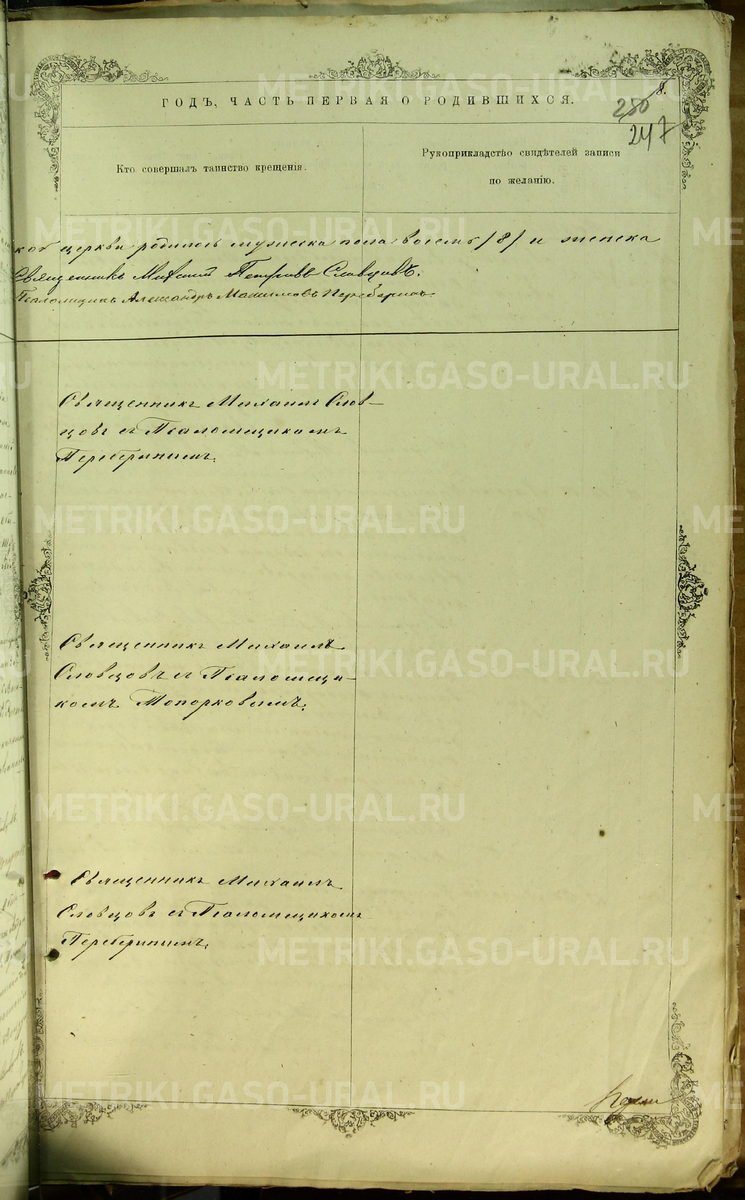 8.
250
247
ГОДЪ, ЧАСТЬ ПЕРВАЯ О РОДИВШИХСЯ.
Кто совершалъ таинство крещенія.
Рукоприкладство свидѣтелей записи
по желанію.
кой церкви родилось мужеска пола восемь /8/ и женска
Священникъ Михаилъ Петровъ Словцовъ.
Псаломщикъ Александръ Максимовъ
Священникъ Михаилъ Слов-
цовъ съ Псаломщикомъ
Переберинымъ.
Священникъ Михаилъ
Словцовъ съ Псаломщи-
комъ Топорковымъ.
Священникъ Михаилъ
Словцовъ съ Псаломщикомъ
Переберинымъ.
METRIKI.GASO-URAL.RU